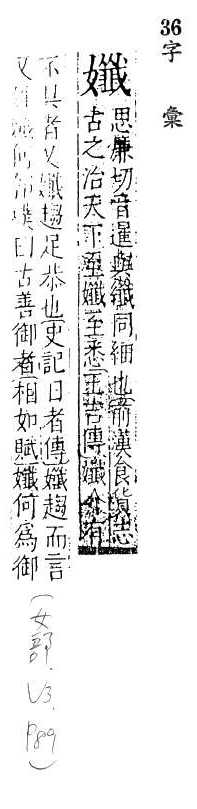 36
字彙
孅 思廉切音暹與纖同細也前漢食貨志
古之治天下至孅至悉王吉傳孅介有
不具者又孅趨足恭也史記日者傳孅趨而言
又何郭璞曰古善御者相如賦孅何為御
(女部. V3, P89)